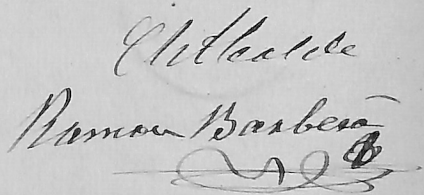 El Alcalde
Ramon Barberá